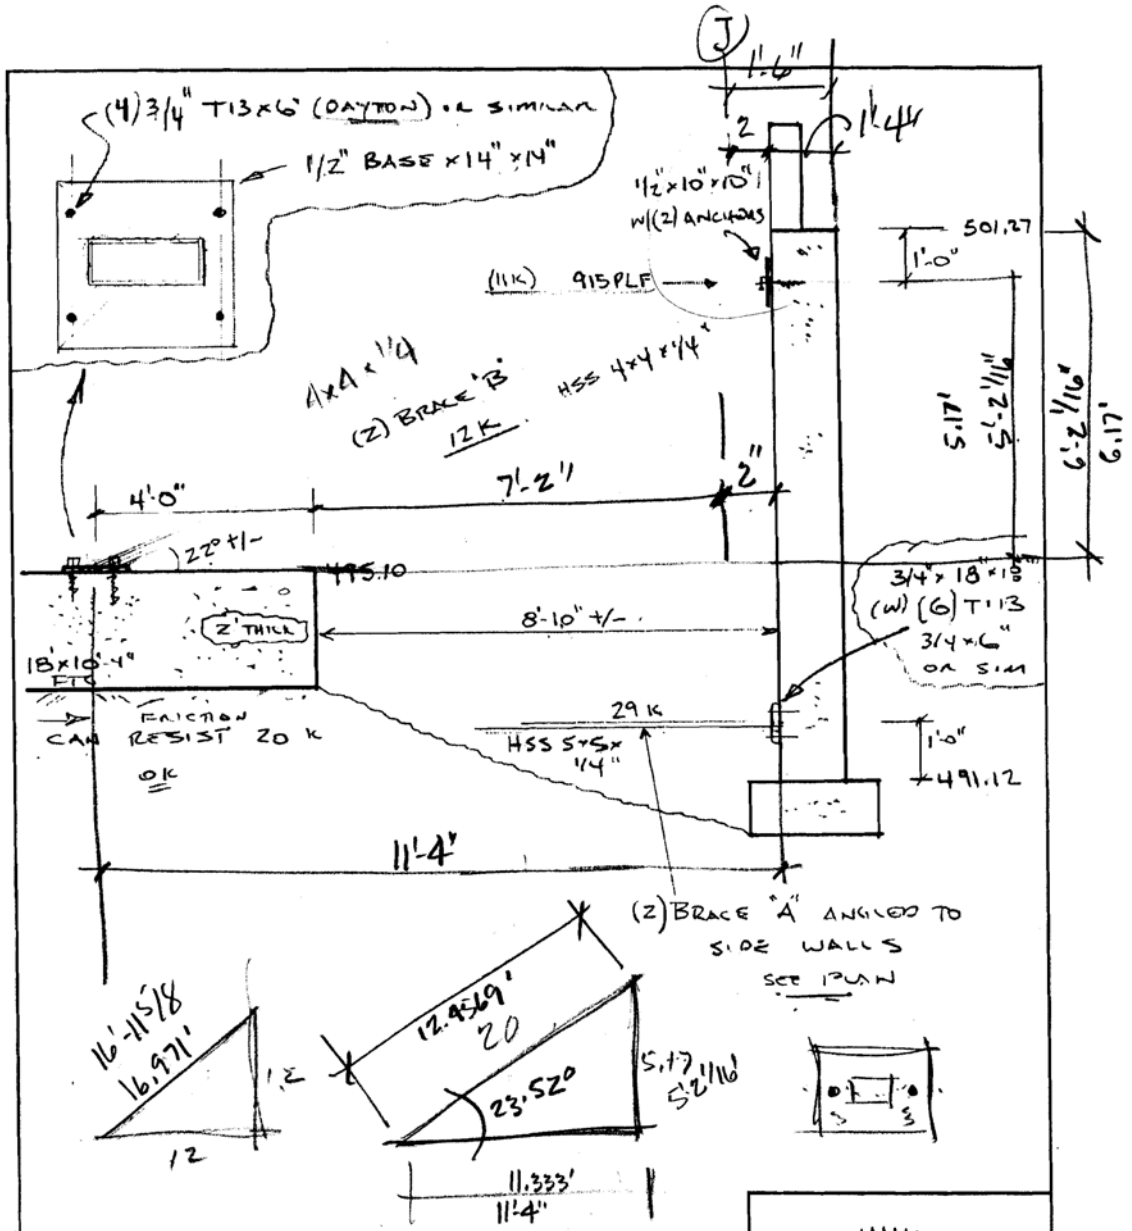 J
1'-6"
(4) 3/4" T13 x 6 (DAYTON) OR SIMILAR
1/2" BASE x 14" x 14"
2
1'-4"
1/2" x 10" x 10"
W/(2) ANCHORS
501.27
1'-0"
(11K) 915 PLF
4x4 x 1/4
(2) BRACE "B"
12 K
HSS 4x4 x 1/4"
5.17'
5'-2 1/16"
6'-2 1/16"
6.17'
4'-0"
7'-2"
2"
22° +/-
495.10
2' THICK
8'-10" +/-
3/4" x 18" x 18"
(W) (6) T13
3/4 x 6"
OR SIM
18' x 10'-4"
FTG
FRICTION
CAN RESIST 20 K
OK
29 K
HSS 5x5x
1/4"
1'-0"
491.12
11'-4"
(2) BRACE "A" ANGLED TO
SIDE WALLS
SEE PLAN
16'-11 5/8
16.971'
12
12
12.4569'
20
23.52°
5.17
5'2 1/16"
11.333'
11'-4"